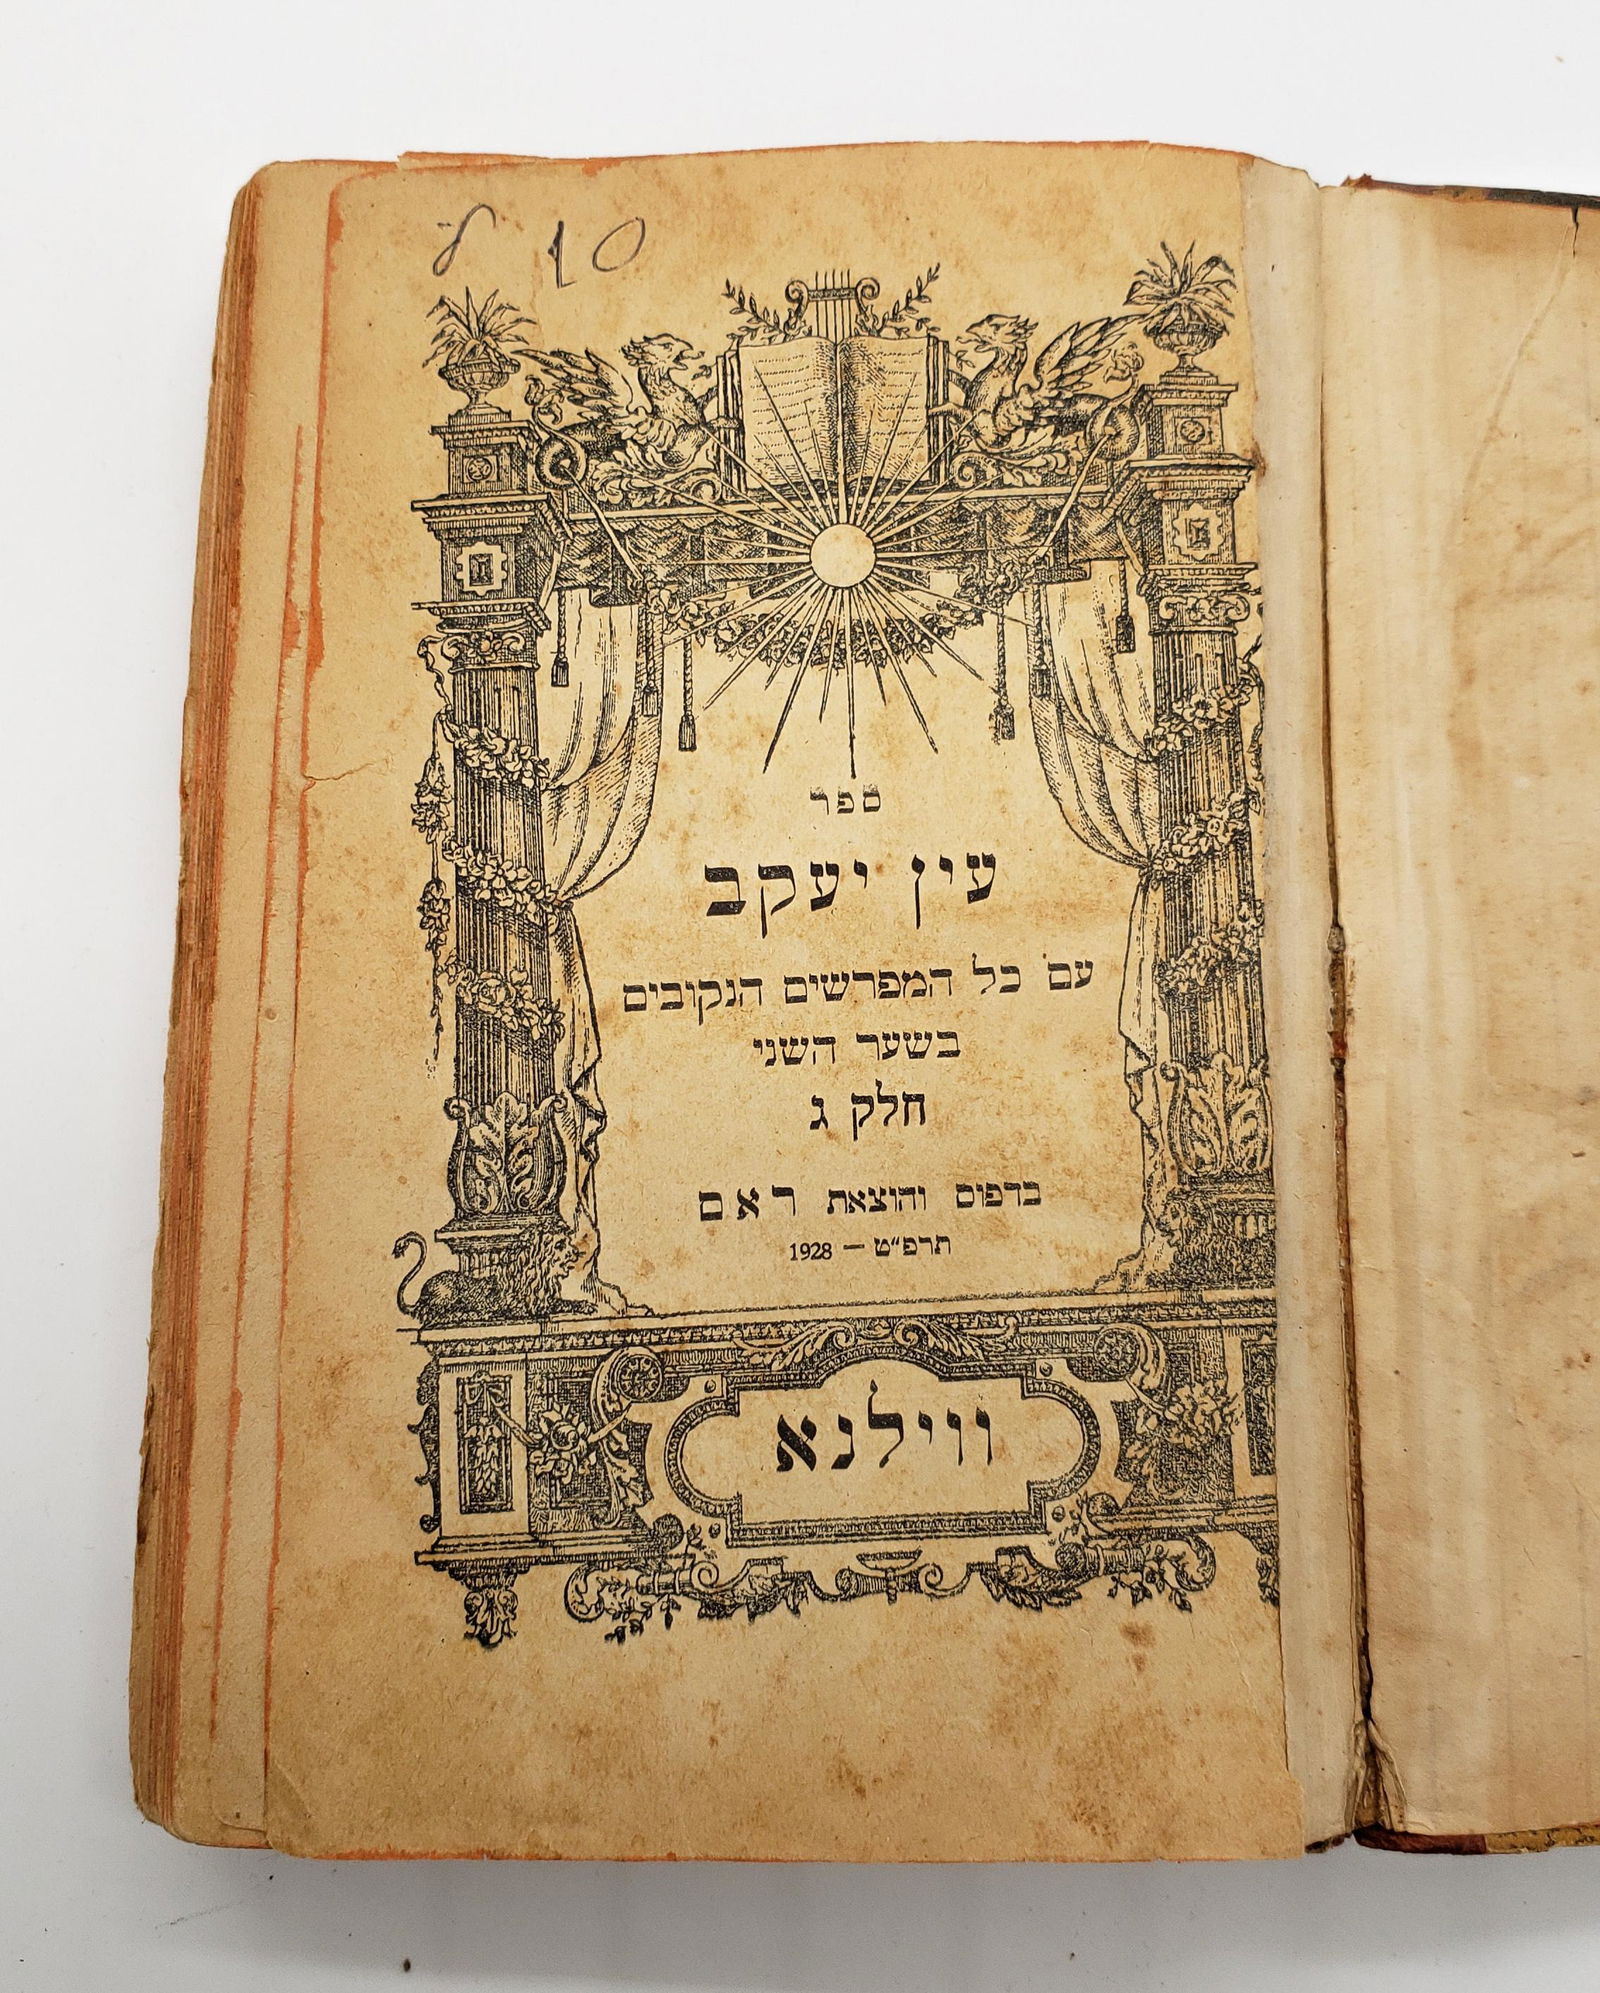 10
ספר
עין יעקב
עם כל המפרשים הנקובים
בשער השני
חלק ג
בדפוס והוצאת ראם
תרפ״ט — 1928
ווילנא